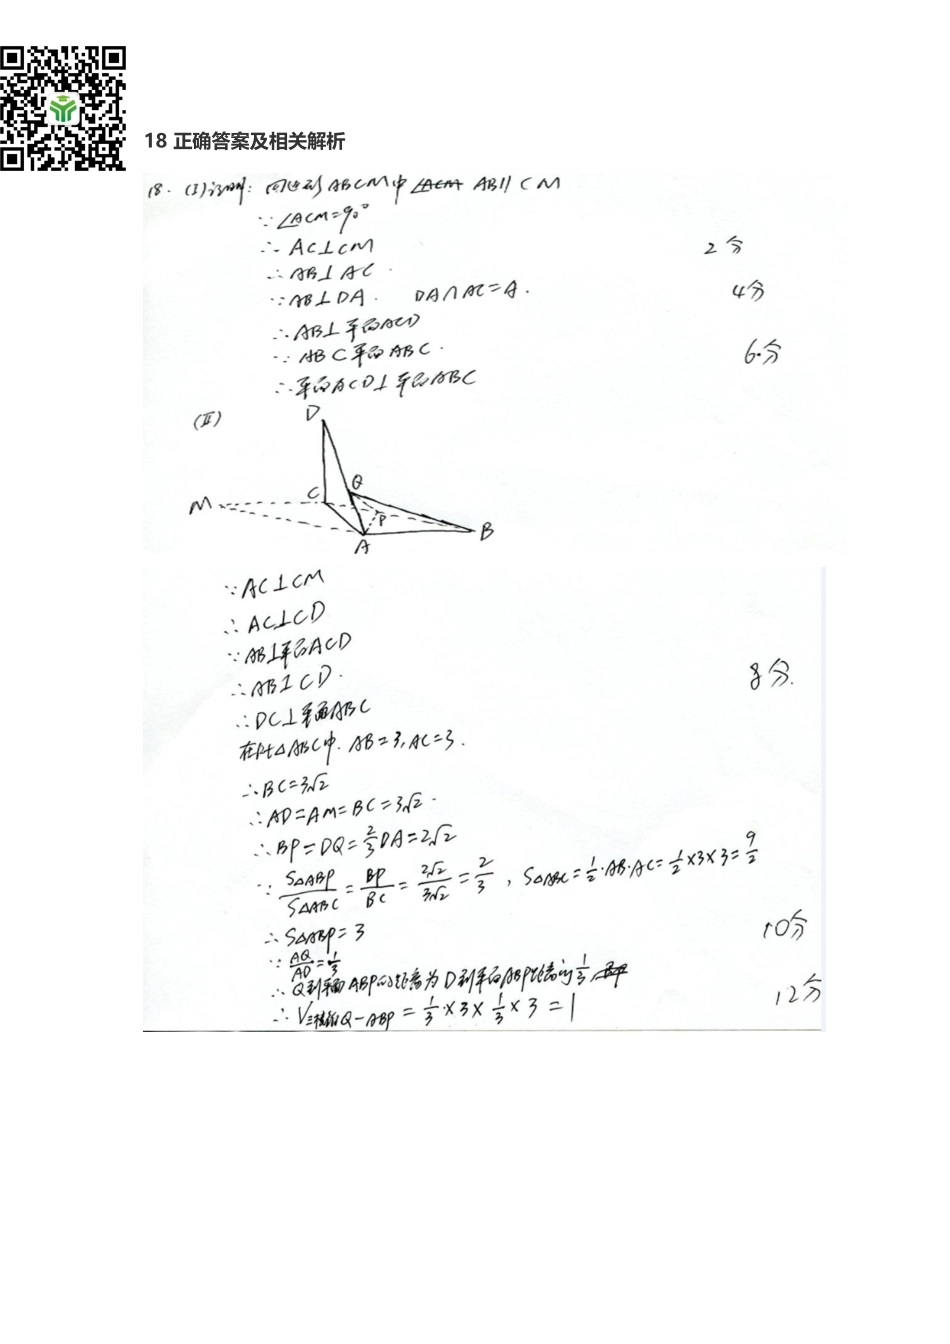 18 正确答案及相关解析
18. (I)证明: 四边形ABCM中 ∠ACM AB∥CM
∵∠ACM=90°
∴ AC⊥CM 2分
∴AB⊥AC.
∵AB⊥DA. DA∩AC=A. 4分
∴AB⊥平面ACD
∵ AB⊂平面ABC. 6分
∴平面ACD⊥平面ABC
(Ⅱ)
D
Q
M C P B
A
∵AC⊥CM
∴AC⊥CD
∵AB⊥平面ACD
∴AB⊥CD. 8分.
∴DC⊥平面ABC
在Rt△ABC中. AB=3, AC=3.
∴BC=3√2
∴AD=AM=BC=3√2.
∴BP=DQ=2/3DA=2√2
∵ S△ABP/S△ABC=BP/BC=2√2/3√2=2/3, S△ABC=1/2·AB·AC=1/2×3×3=9/2
∴S△ABP=3 10分
∵AQ/AD=1/3
∴Q到平面ABP的距离为D到平面ABP距离的1/3,
∴V三棱锥Q-ABP=1/3×3×1/3×3=1 12分